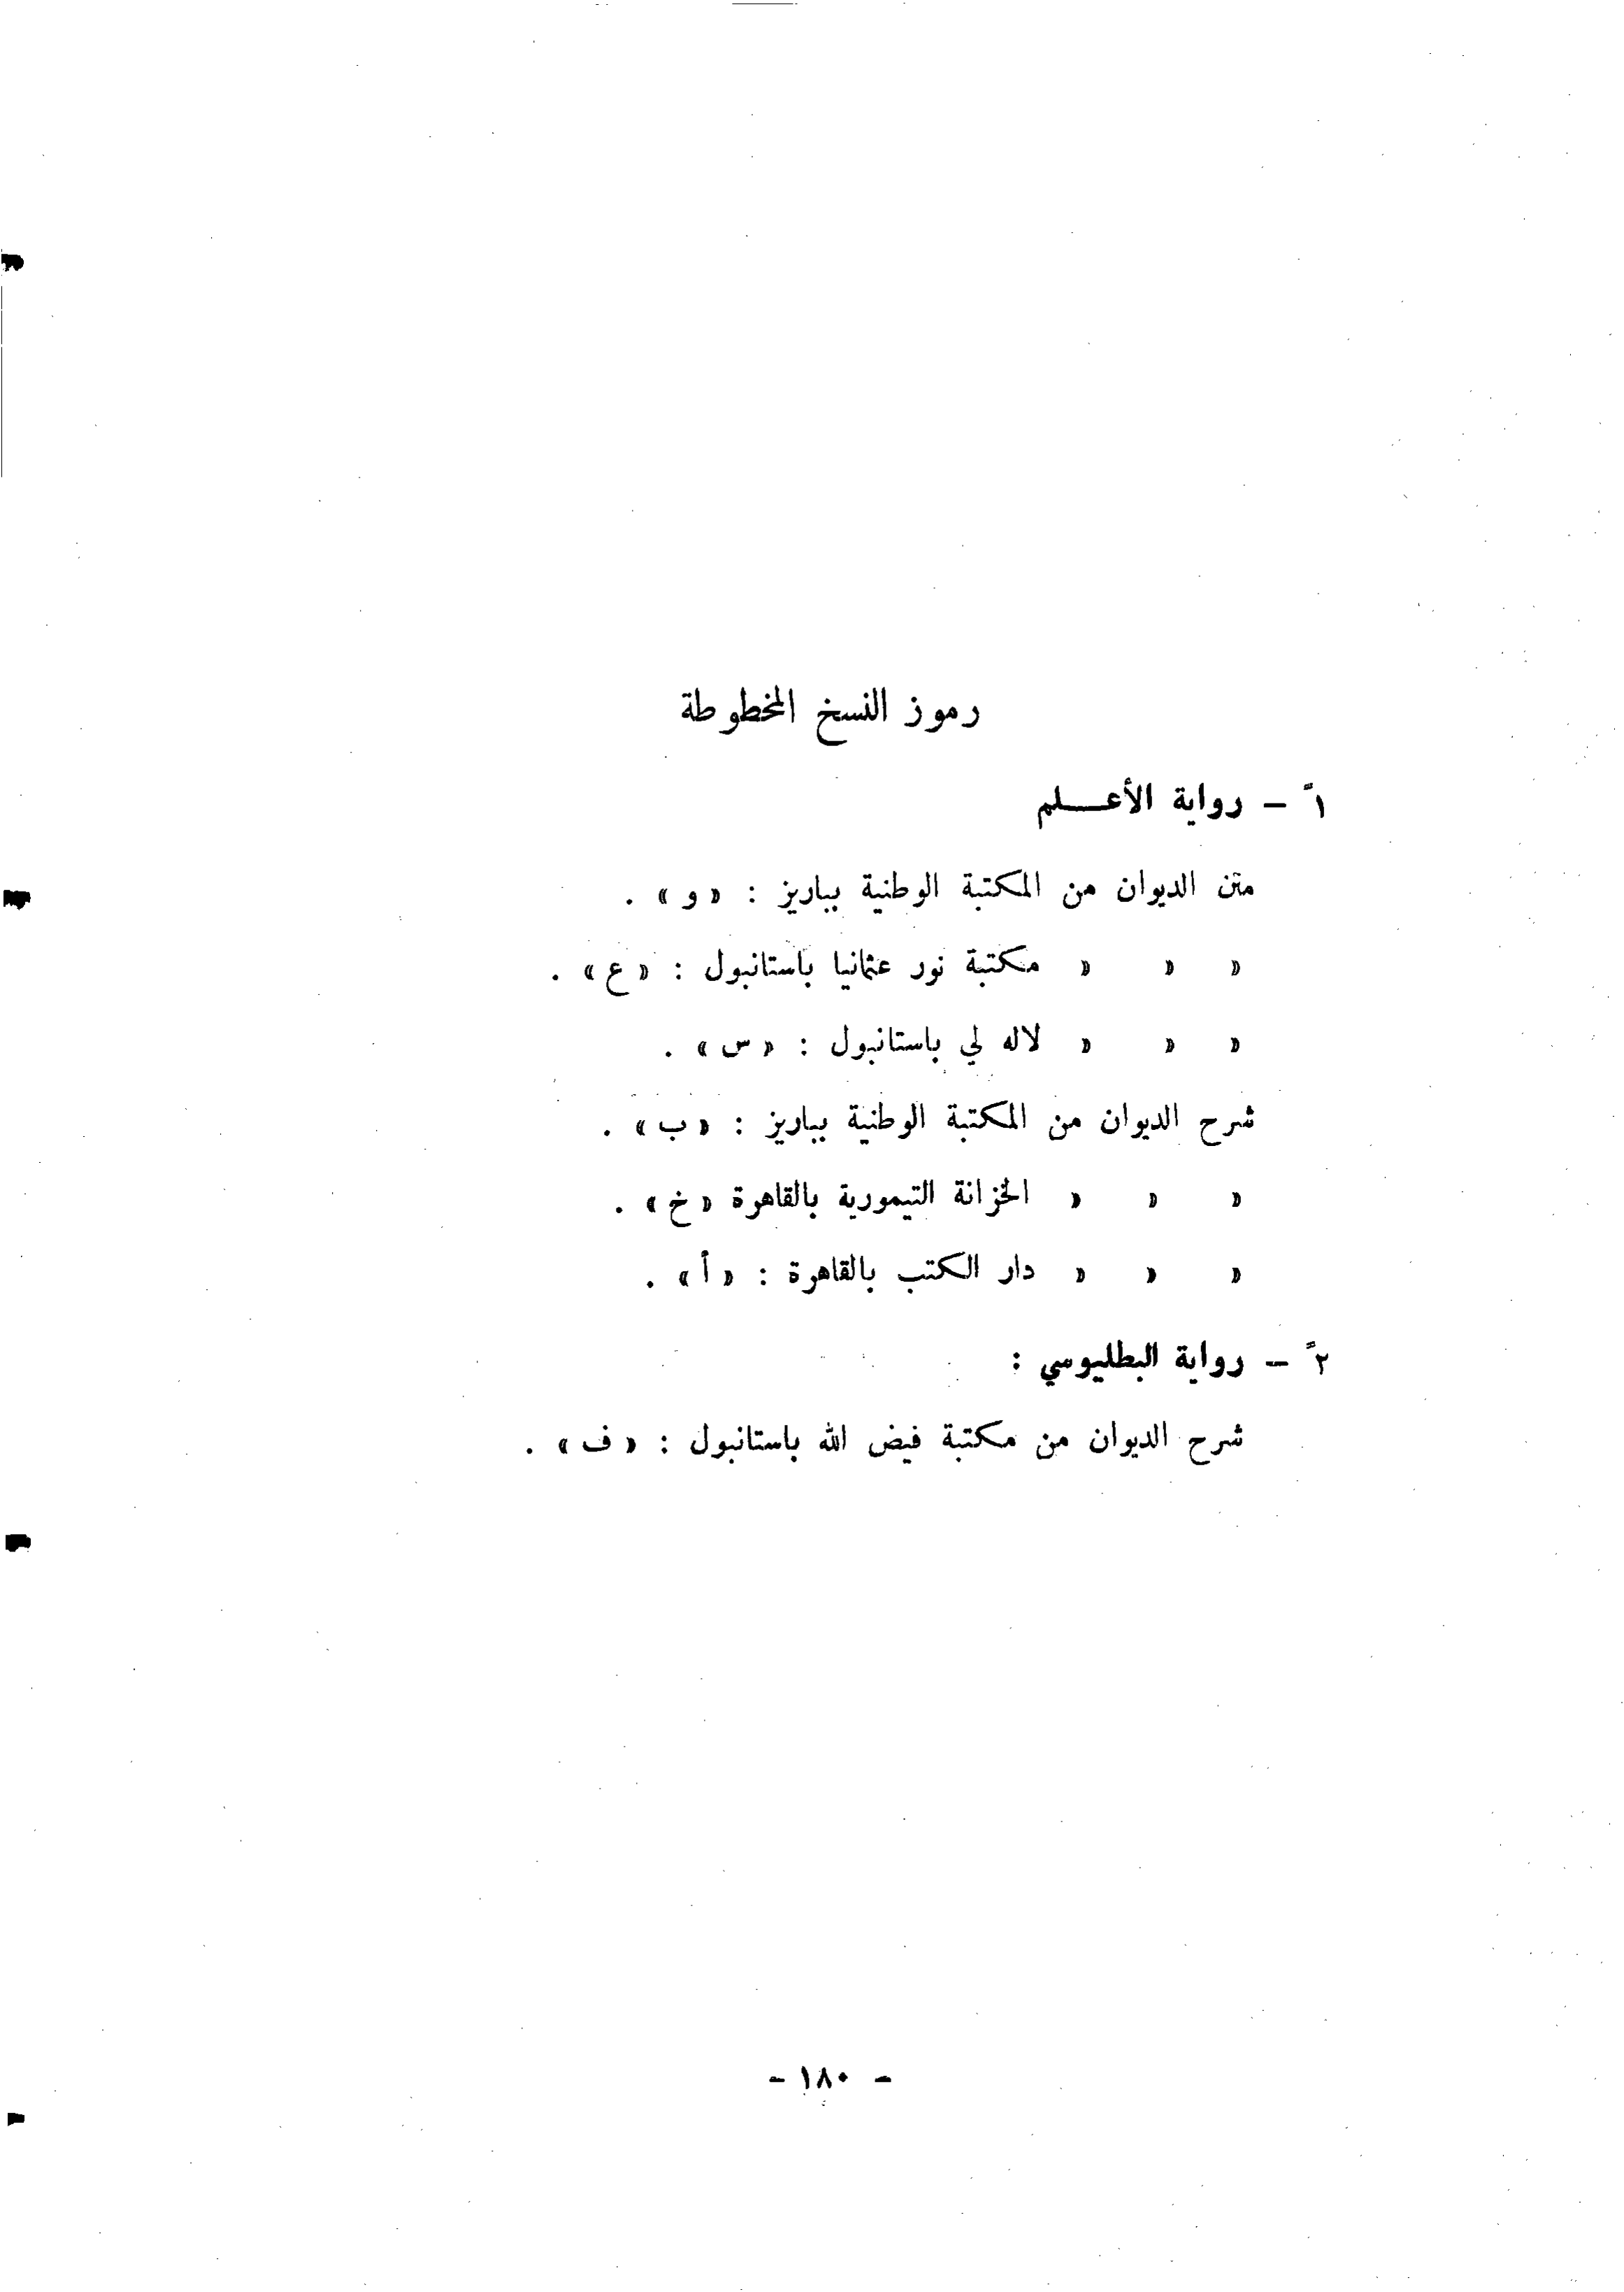 رموز النسخ المخطوطة
١ً – رواية الأعـــلم
متن الديوان من المكتبة الوطنية بباريز : « و » .
» » » مكتبة نور عثمانيا باستانبول : « ع » .
» » » لاله لي باستانبول : « س » .
شرح الديوان من المكتبة الوطنية بباريز : « ب » .
» » » الخزانة التيمورية بالقاهرة « خ » .
» » » دار الكتب بالقاهرة : « أ » .
٢ً – رواية البطليوسي :
شرح الديوان من مكتبة فيض الله باستانبول : « ف » .
– ١٨٠ –